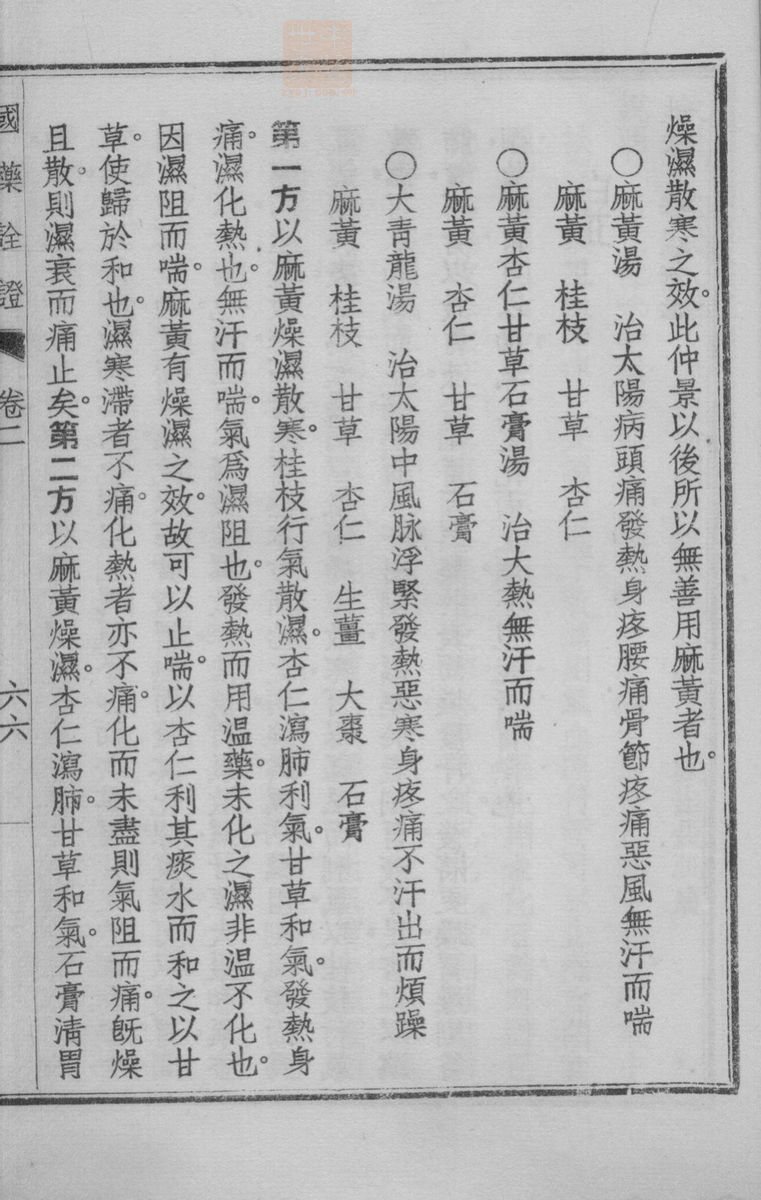 燥濕散寒之效。此仲景以後所以無善用麻黃者也。
〇麻黃湯　治太陽病頭痛發熱身疼腰痛骨節疼痛惡風無汗而喘
麻黃　桂枝　甘草　杏仁
〇麻黃杏仁甘草石膏湯　治大熱無汗而喘
麻黃　杏仁　甘草　石膏
〇大青龍湯　治太陽中風脉浮緊發熱惡寒身疼痛不汗出而煩躁
麻黃　桂枝　甘草　杏仁　生薑　大棗　石膏
第一方以麻黃燥濕散寒。桂枝行氣散濕。杏仁瀉肺利氣。甘草和氣。發熱身
痛。濕化熱也。無汗而喘。氣爲濕阻也。發熱而用温藥。未化之濕非温不化也。
因濕阻而喘。麻黃有燥濕之效。故可以止喘。以杏仁利其痰水而和之以甘
草。使歸於和也。濕寒滯者不痛。化熱者亦不痛。化而未盡則氣阻而痛。旣燥
且散。則濕衰而痛止矣。第二方以麻黃燥濕。杏仁瀉肺。甘草和氣。石膏淸胃
國藥詮證　卷二　六六